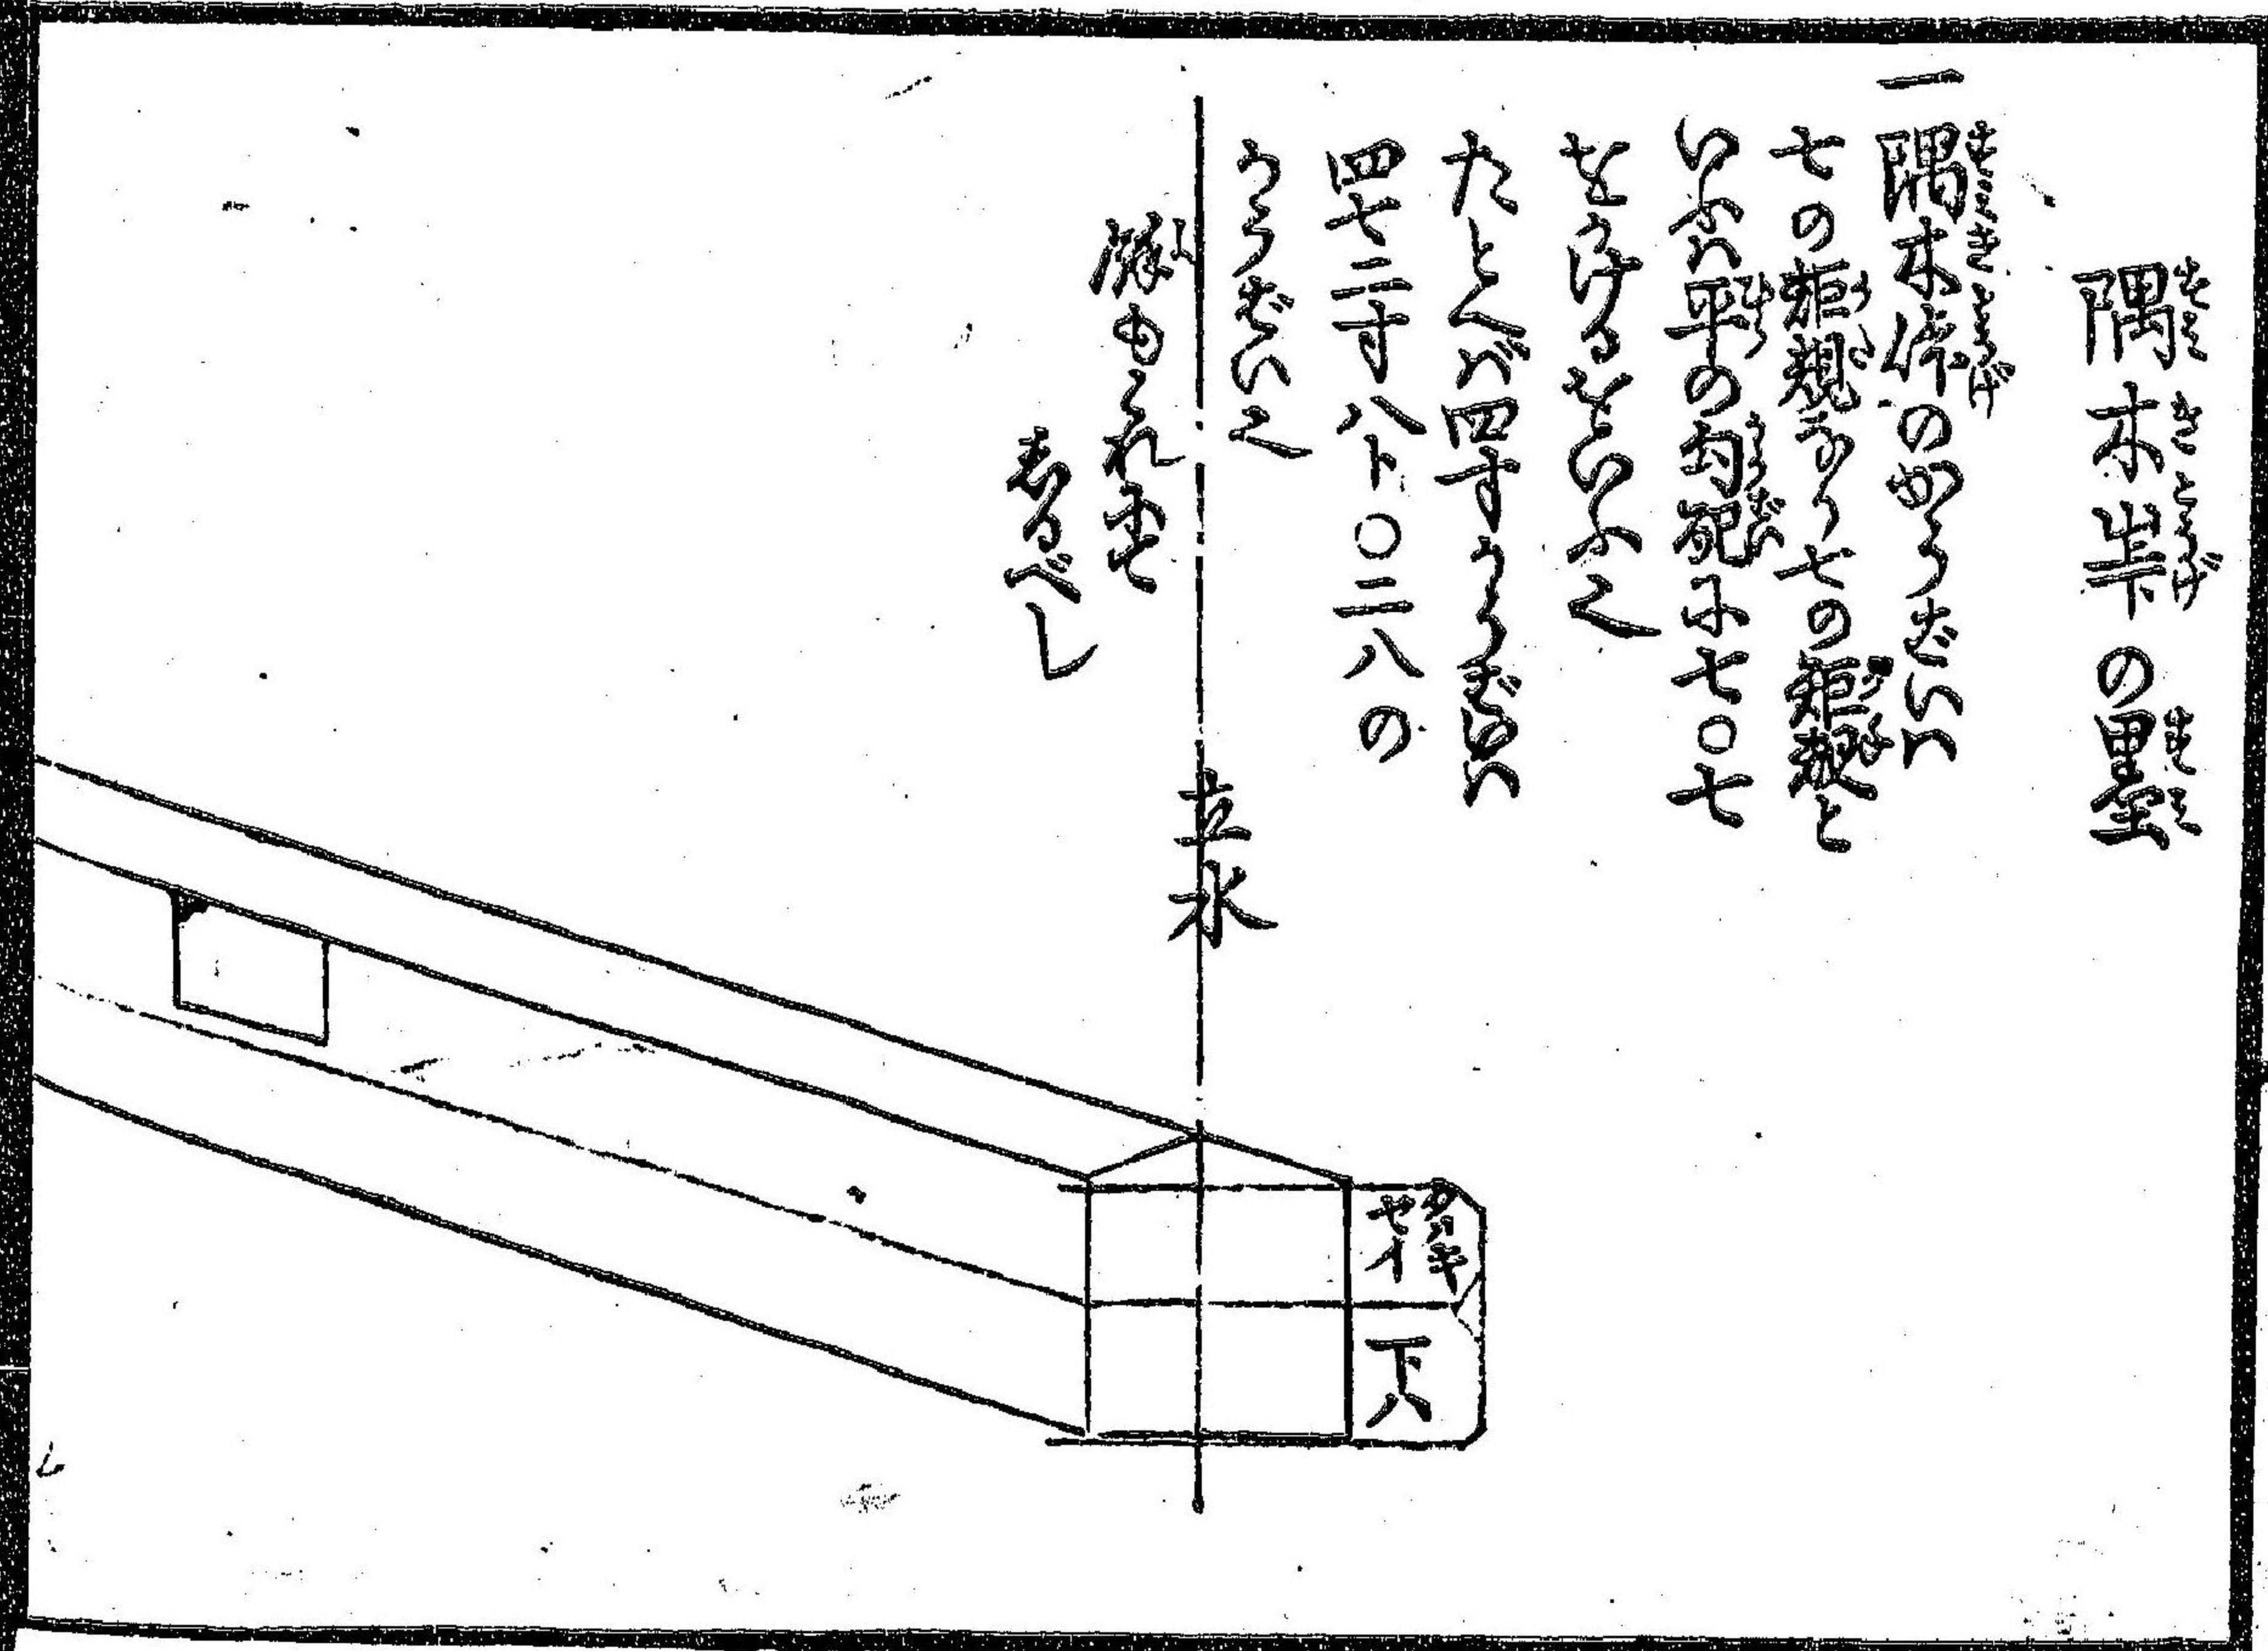 隅木峠の墨
一隅木峠のかうばいハ
七の矩規なり七の矩規と
いふハ平の勾配に七〇七
をかけるをいふ也
たとへバ四寸かうばいハ
四七二寸八卜〇二八の
かうばい也
餘もこれにて
志るべし
立水
タルキ
セイ
下ハ